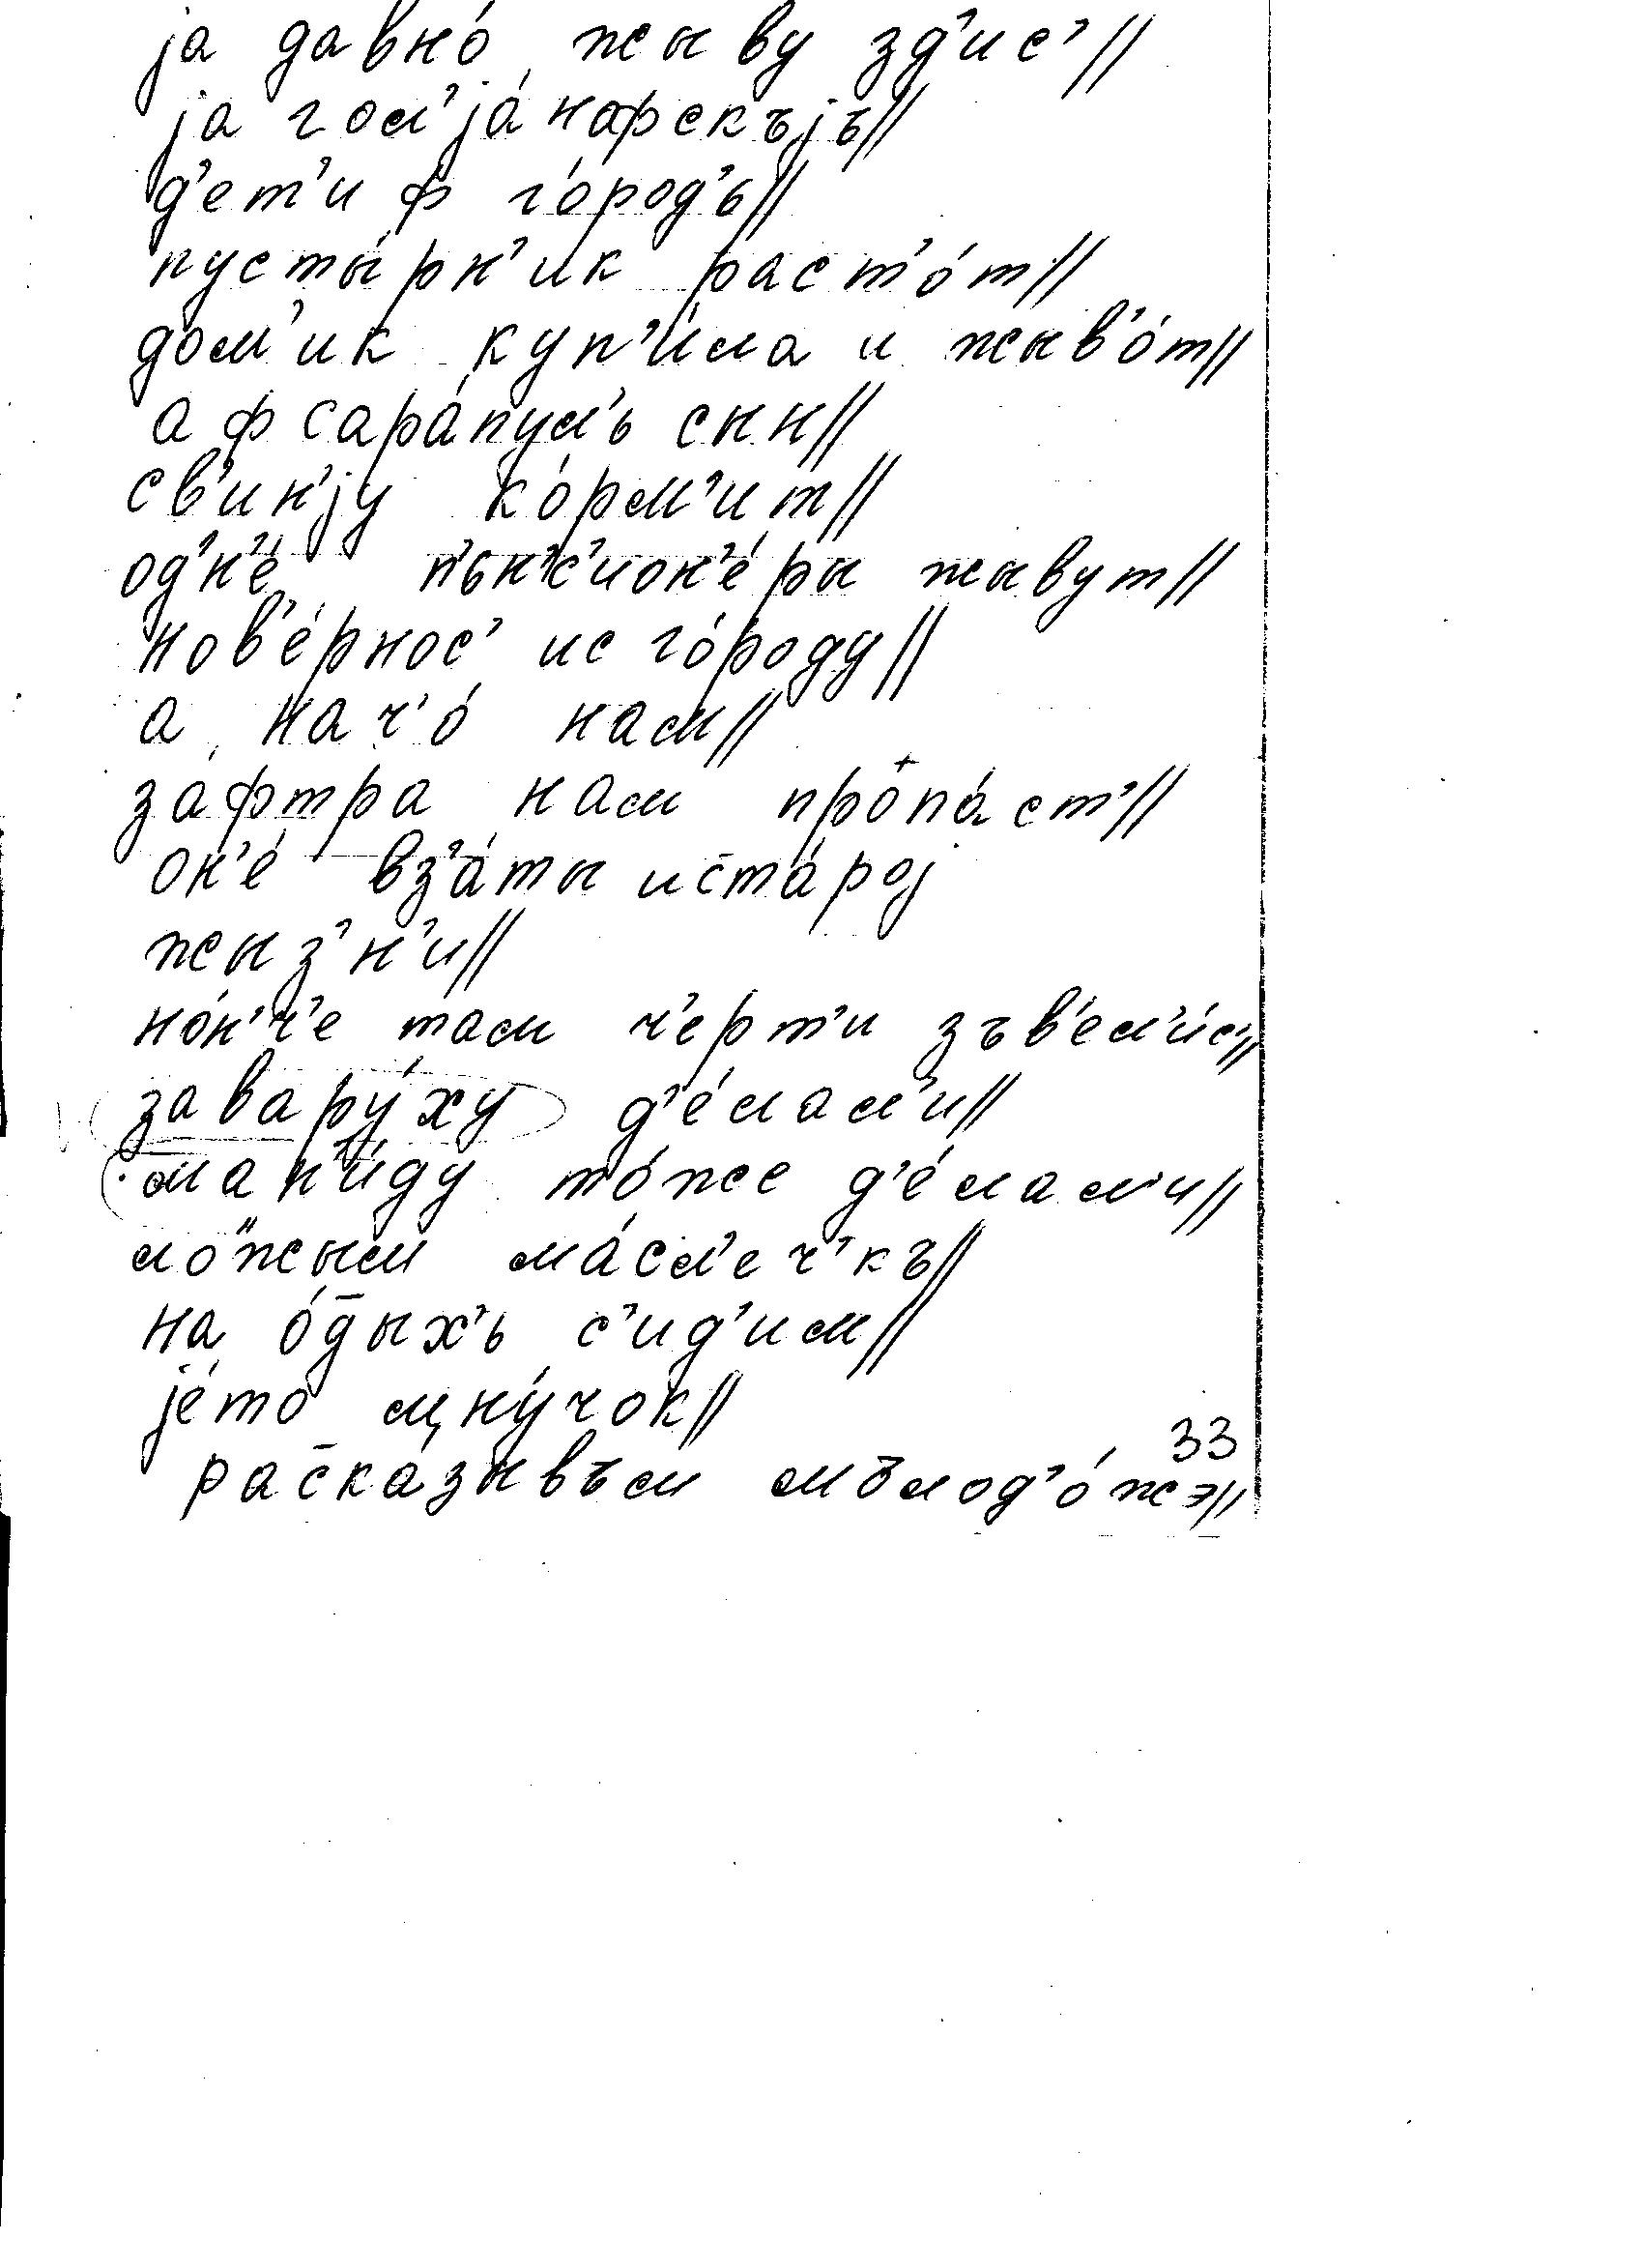 ја давно́ жыву зд'ис'//
ја гол'ја́нарскъјъ//
д'ет'и ф го́род'ь//
пусты́рн'ик раст'о́т//
дом'ик куп'и́ла и жыв'о́т//
а ф сара́пул'ь сын//
св'ин'jу ко́рм'ит//
од'н'е́ п'ьн'с'ион'е́ры жывут//
нов'е́рнос' ис го́роду//
а на ч'о́ нам//
за́фтра нам пропа́ст'//
он'е́ вз'а́ты иста́рој
жыз'н'и//
но́н'ч'е там ч'ерт'и зъв'ел'и́с'//
завару́ху д'е́лал'и//
лан'и́ду то́же д'е́лал'и//
ло̋жым ма́сл'еч'къ//
на о́д̄ых'ь с'ид'им//
је́то мну́чок//
рас̄ка́зывъл мълод'о́жэ//
33